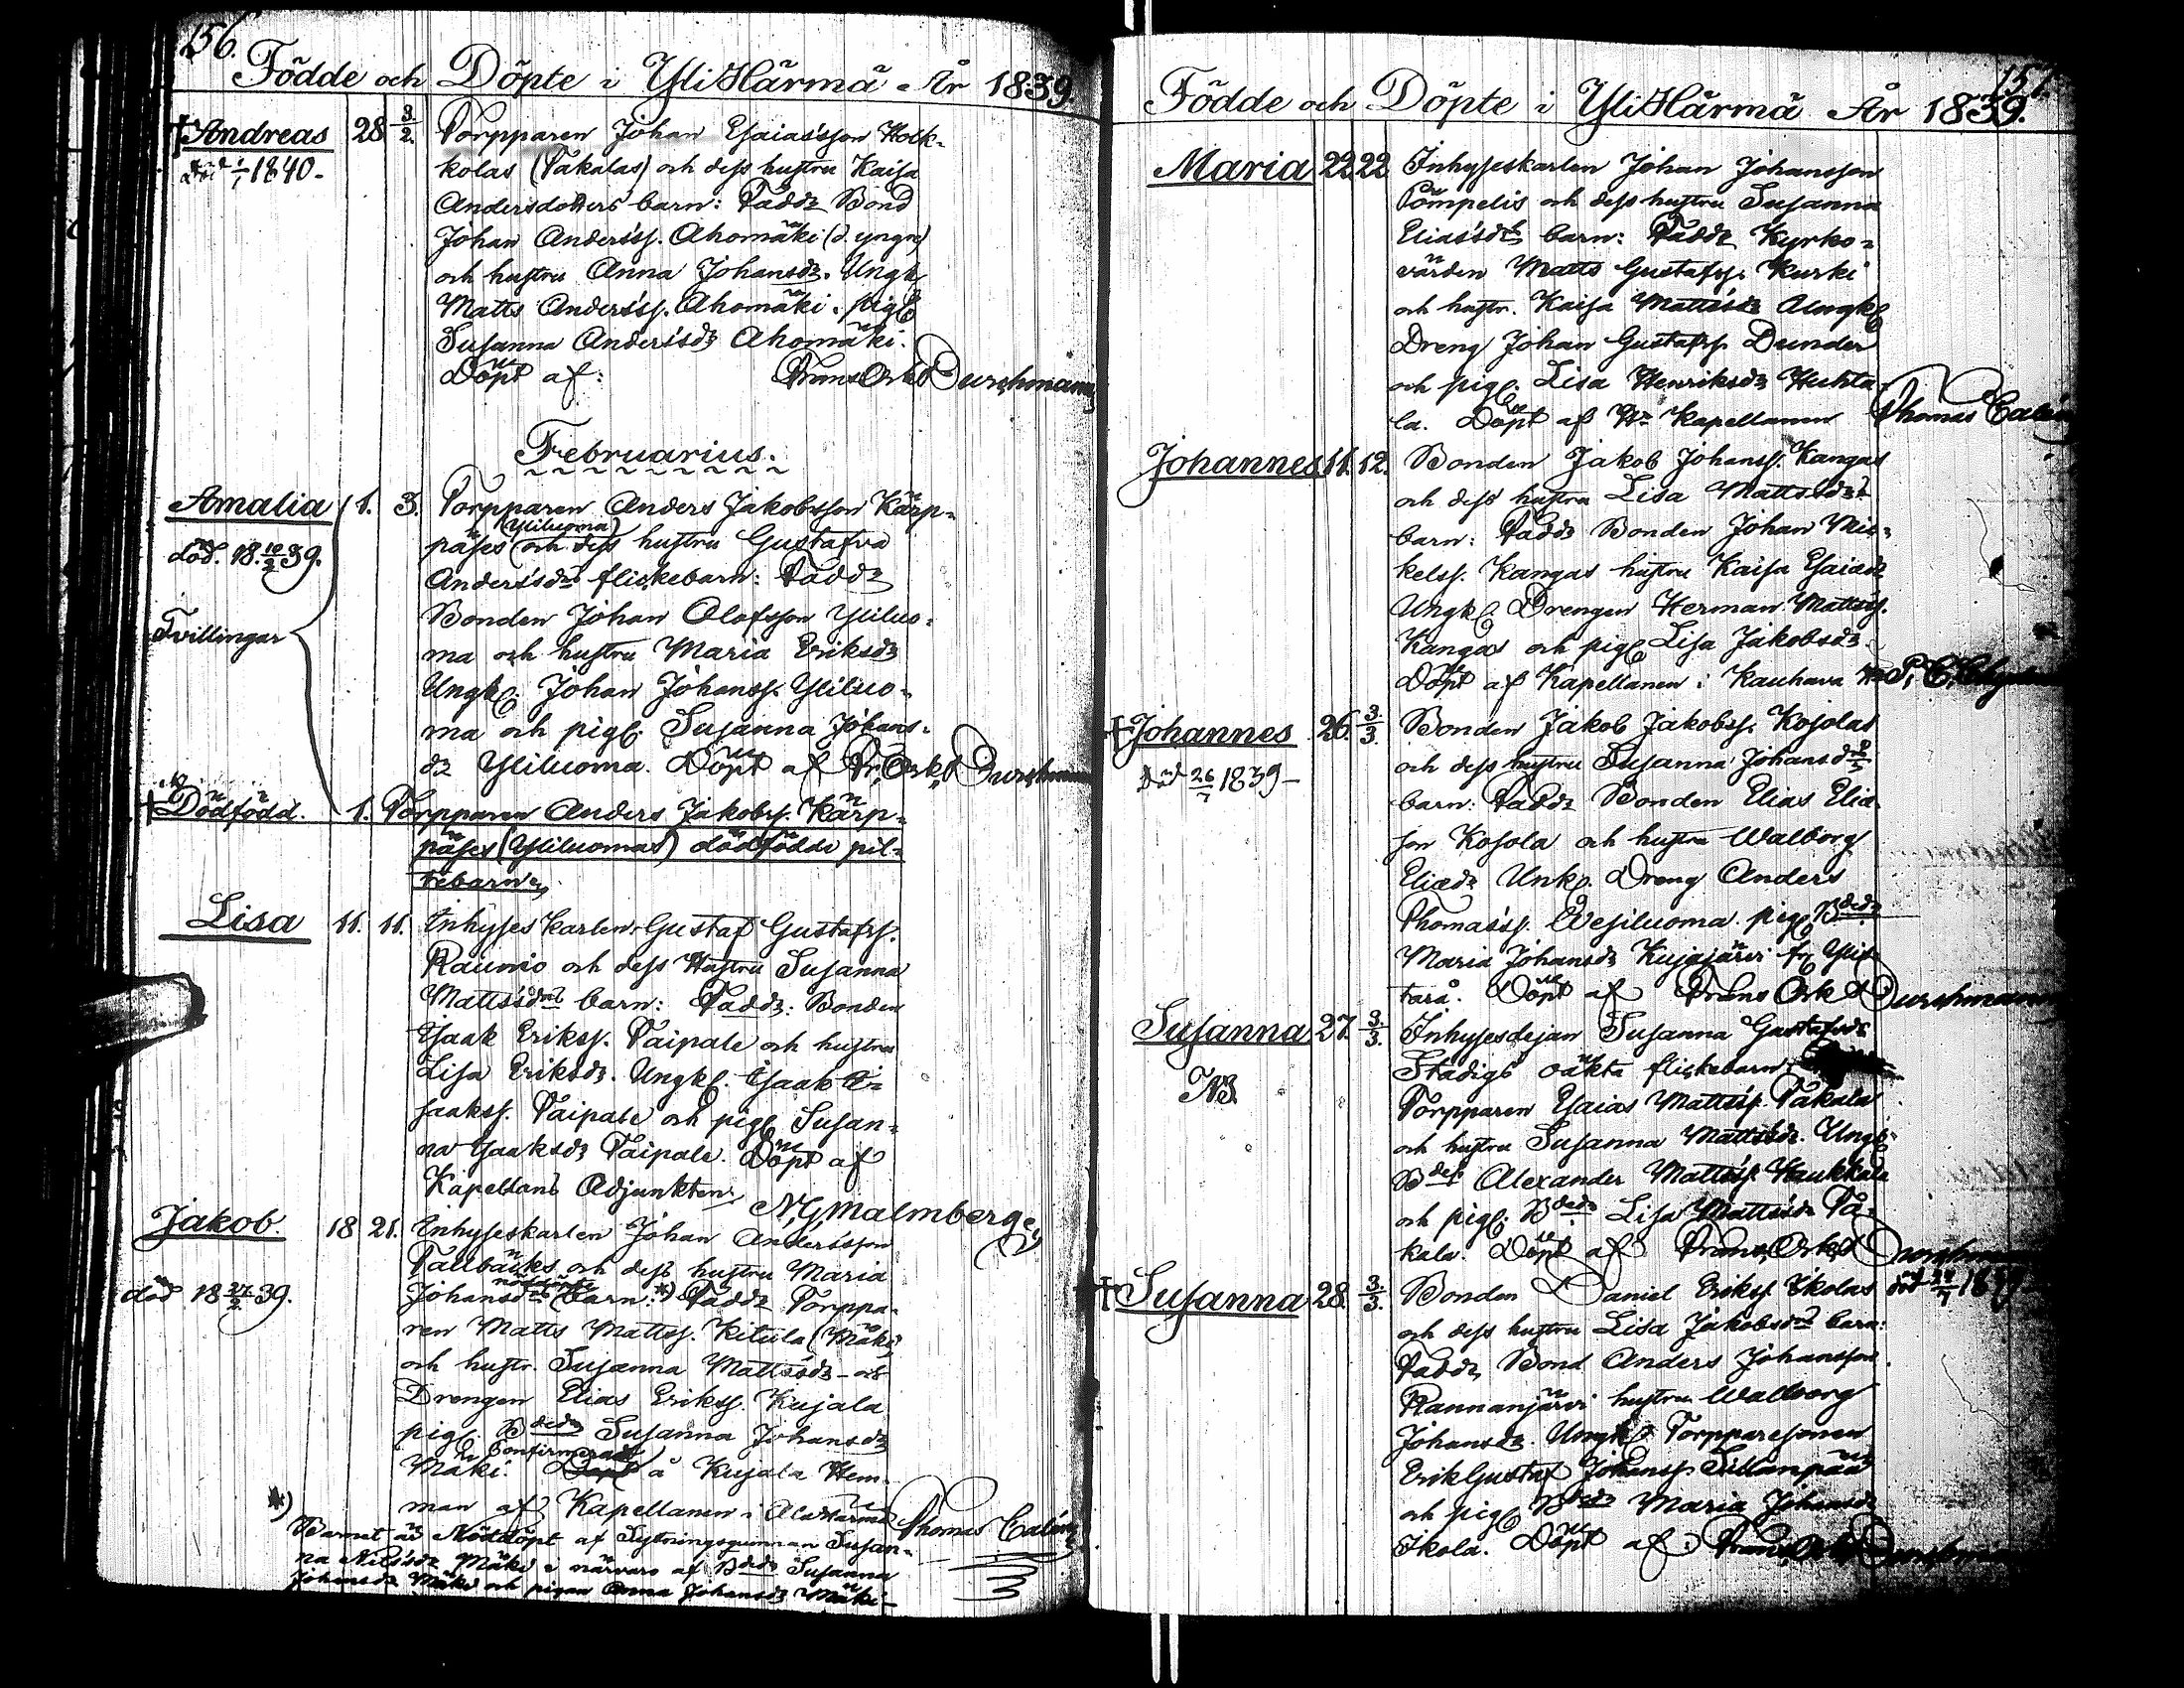 156.
Födde och Döpte i YliHärmä År 1839.
†Andreas 28 3/2. Torpparen Johan Esaiasson Hock-
Död 1/1 1840. kolas (Takalas) och dess hustru Kaisa
Andersdotters barn: Fadd. Bond
Johan Anderss. Ahomäki (d. yngre)
och hustru Anna Johansdr. Ungk.
Matts Anderss. Ahomäki. pig.
Susanna Andersdr Ahomäki.
Döpt af: Frans Osk. Durchman
Februarius.
Amalia 1. 3. Torpparen Anders Jakobsson Kärp-
(Yliluoma)
päses och dess hustru Gustafva
död. 18 10/2 39.
Andersdrs flickebarn: Fadd.
Bonden Johan Olofsson Yliluo-
Tvillingar
ma och hustru Maria Eriksdr
Ungk. Johan Johanss. Yliluo-
ma och pig. Susanna Johans-
dr Yliluoma. Döpt af Fr. Osk. Durchman
†Dödfödd. 1. Torpparen Anders Jakobss. Kärp-
päses (Yliluomas) dödfödde pil-
tebarn
Lisa 11. 11. Inhyses Karlen Gustaf Gustafss.
Raunio och dess Hustru Susanna
Mattsdrs barn: Fadd: Bonden
Isaak Erikss. Taipale och hustru
Lisa Eriksdr. Ungk. Isaak I-
saakss. Taipale och pig. Susan-
na Isaaksdr Taipale. Döpt af
Kapellans Adjunkten N. G. Malmberg
Jakob. 18 21. Inhyseskarlen Johan Andersson
Tallbacks och dess hustru Maria
död 18 27/2 39.
Johansdrs barn: *) Fadd. Torppa-
ren Matts Mattss. Kitula (Mäki)
och hustr. Susanna Mattsdr
Drengen Elias Erikss. Kujala
pig. Bdedr Susanna Johansdr
Confirmerad
Mäki. Döpt å Kujala Hem-
man af Kapellanen i AlaHärmä Thomas Calén
*) Barnet är Nöddöpt af Sytningsqumman Susan-
na Nilsdr Mäki i närvaro af Bdedr Susanna
Johansdr Mäki och pigan Anna Johansdr Mäki
157.
Födde och Döpte i YliHärmä År 1839.
Maria 22 22 Inhyseskarlen Johan Johansson
Pömpelis och dess hustru Susanna
Eliasdrs barn: Fadd. Kyrko-
värden Matts Gustafss. Kurki
och hustr. Kaisa Mattsdr Ungk.
Dreng Johan Gustafss. Dunder
och pig. Lisa Henriksdr Huhta-
la. Döpt af Hr Kapellanen Thomas Calén
Johannes 11. 12. Bonden Jakob Johanss. Kangas
och dess hustru Lisa Mattsdrs
barn: Fadd. Bonden Johan Mic-
kelss. Kangas hustru Kaisa Esaiadr
Ungk. Drengen Herman Mattss.
Kangas och pig. Lisa Jakobsdr
Döpt af Kapellanen i Kauhava
†Johannes 26. 3/3. Bonden Jakob Jakobss. Kosolas
Död 26/7 1839 och dess hustru Susanna Johansdrs
barn: Fadd. Bonden Elias Elia-
son Kosola och hustru Walborg
Eliadr Unk. Dreng Anders
Thomass. Wesiluoma. pig. Bdedr
Maria Johansdr Kujajärvi
tarå. Döpt af Frans Osk. Durchman
Susanna 27. 3/3. Inhysesdejan Susanna Gustafsdr
NB Stadigs oäkta flickebarn:
Torpparen Esaias Mattss. Takala
och hustru Susanna Mattsdr. Ungk.
Bdes Alexander Mattss. Haukkala
och pig. Bdedr Lisa Mattsdr Ta-
kala. Döpt af Frans Osk. Durchman
†Susanna 28. 3/3. Bonden Daniel Erikss. Ikolas
och dess hustru Lisa Jakobsdrs barn:
Fadd. Bond Anders Johansson
Rannanjärvi hustru Walborg
Johansdr. Ungk. Torpparesonen
Erik Gustaf Johanss. Sillanpää
och pig. Bdedr Maria Johansdr
Ikola. Döpt af: Frans Osk. Durchman